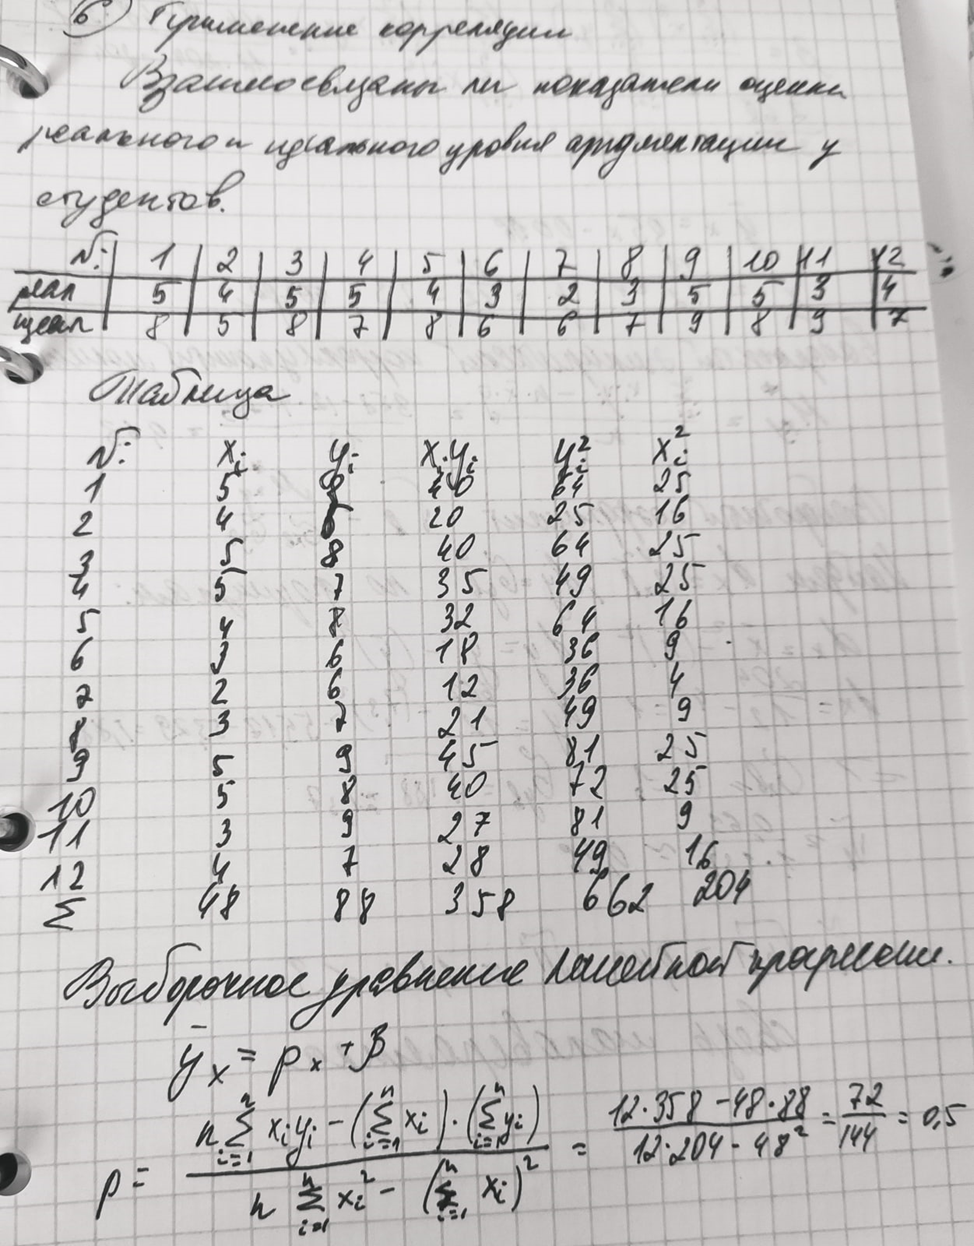 6) Применение корреляции
Взаимосвязаны ли показатели оценки
реального и идеального уровня аргументации у
студентов.
№: 1 2 3 4 5 6 7 8 9 10 11 12
реал 5 4 5 5 4 3 2 3 5 5 3 4
идеал 8 5 8 7 8 6 6 7 9 8 9 7
Таблица
№: xᵢ yᵢ xᵢyᵢ yᵢ² xᵢ²
1 5 8 40 64 25
2 4 5 20 25 16
3 5 8 40 64 25
4 5 7 35 49 25
5 4 8 32 64 16
6 3 6 18 36 9
7 2 6 12 36 4
8 3 7 21 49 9
9 5 9 45 81 25
10 5 8 40 72 25
11 3 9 27 81 9
12 4 7 28 49 16
Σ 48 88 358 662 204
Выборочное уравнение линейной прогрессии.
ȳₓ = pₓ + β
p = (n Σⁿᵢ₌₁ xᵢyᵢ − (Σⁿᵢ₌₁ xᵢ)·(Σⁿᵢ₌₁ yᵢ)) / (n Σⁿᵢ₌₁ xᵢ² − (Σⁿᵢ₌₁ xᵢ)²) = (12·358 − 48·88) / (12·204 − 48²) = 72/144 = 0,5